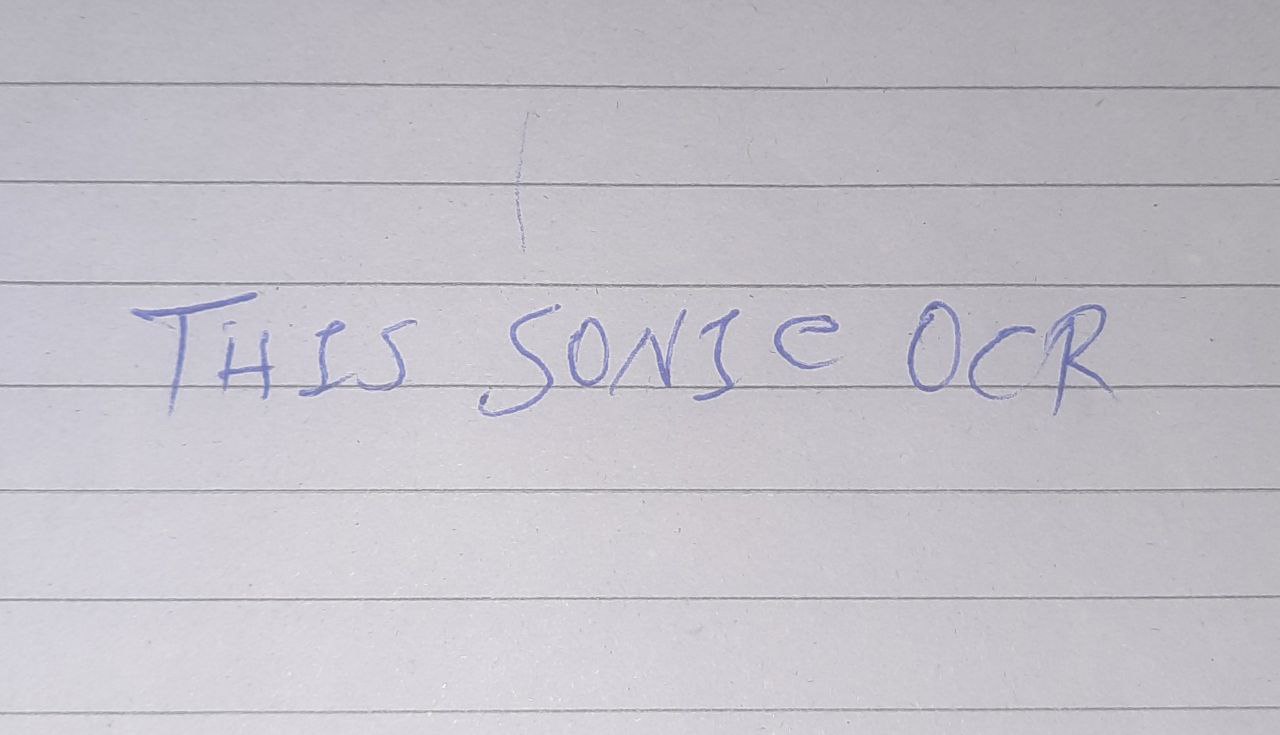 THIS SONIC OCR